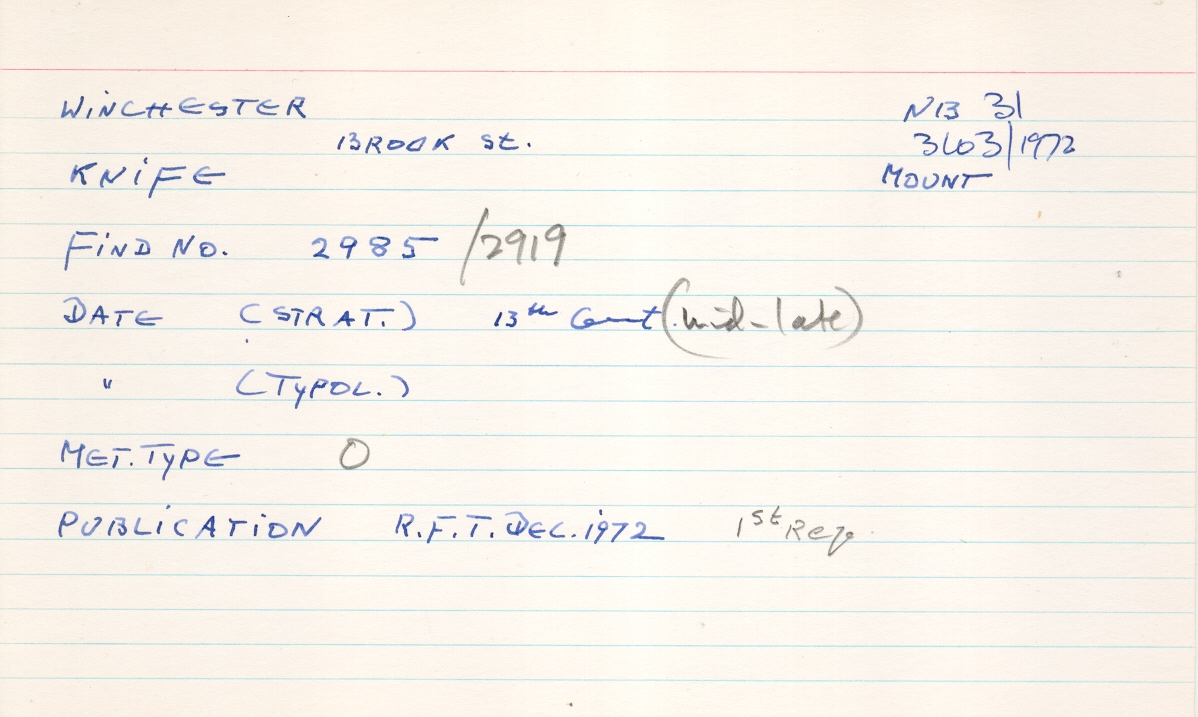 WINCHESTER
NB 31
BROOK St.
3603/1972
KNIFE
MOUNT
FIND NO. 2985 /2919
DATE (STRAT.) 13th Cent. (mid-late)
" (TYPOL.)
MET. TYPE O
PUBLICATION R.F.T. DEC. 1972 1st Rep.